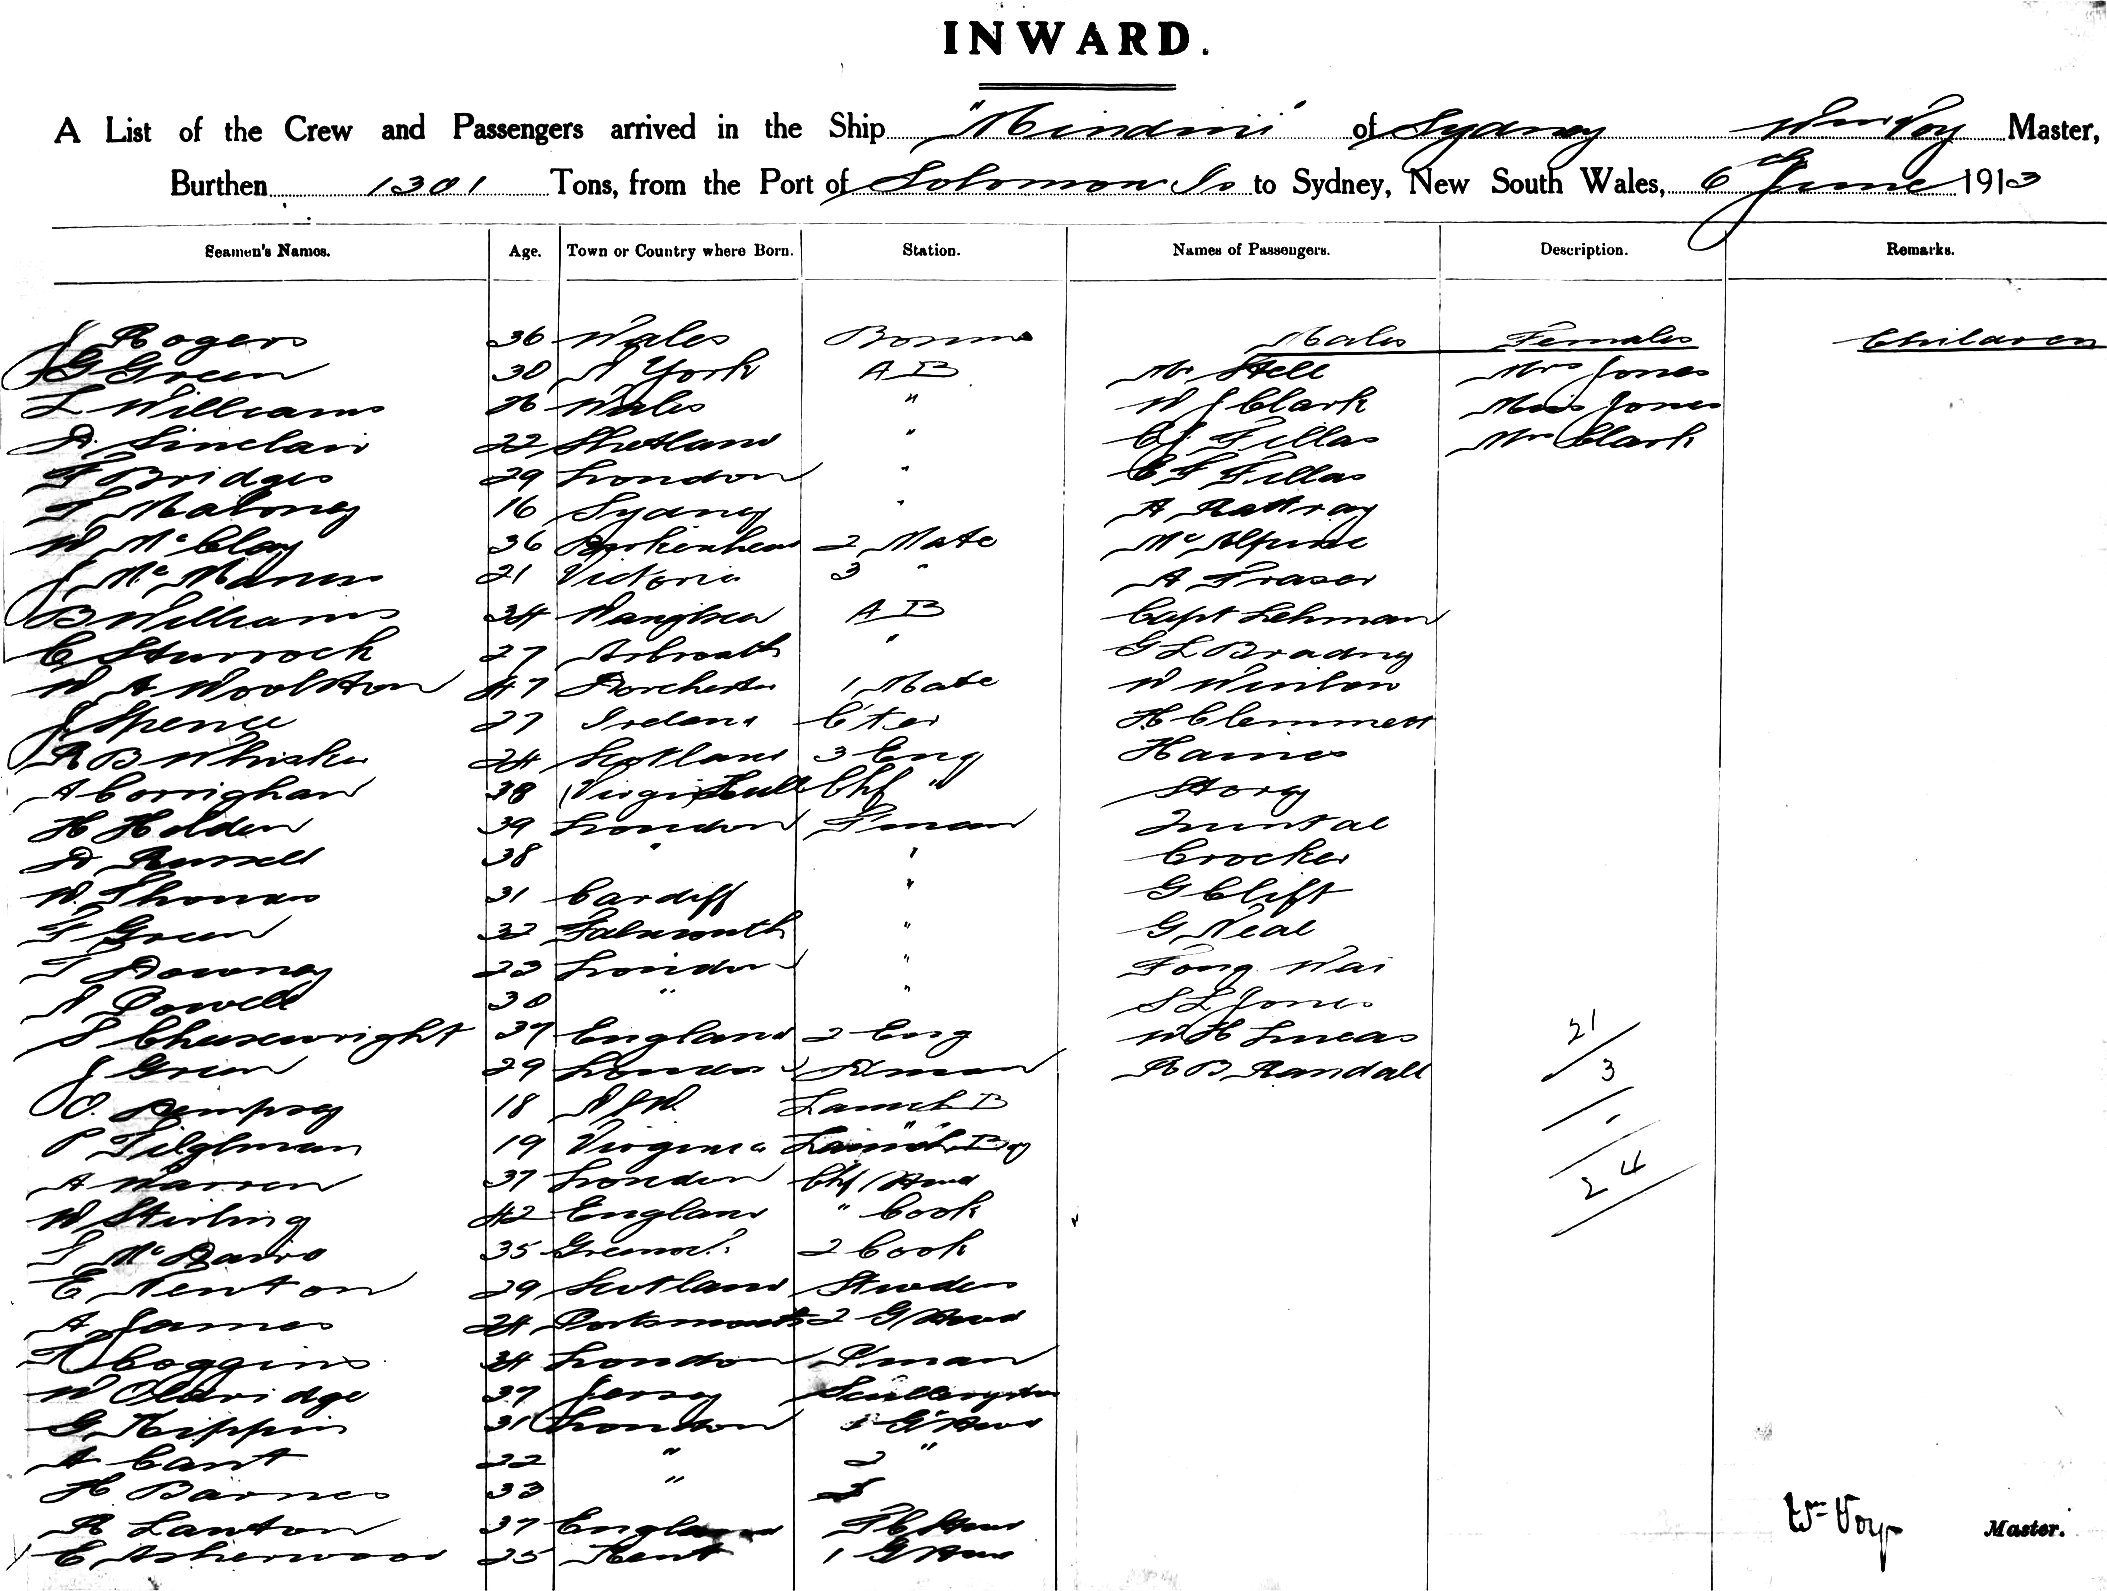 INWARD.
A List of the Crew and Passengers arrived in the Ship "Mindini" of Sydney Wm Voy Master,
Burthen 1301 Tons, from the Port of Solomon Is to Sydney, New South Wales, 6th June 1913
Seamen's Names. Age. Town or Country where Born. Station. Names of Passengers. Description. Remarks.
J Rogers 36 Wales Males Females Children
G Green 30 N York AB Mr Stell Mrs Jones
L Williams 26 Wales " W J Clark Miss Jones
D. Sinclair 22 Shetland " C J Fillas Mrs Clark
F Bridges 29 London " C F Fillas
T Maloney 16 Sydney " A Rattray
W McClay 36 Birkenhead 2 Mate McAlpine
J McManus 21 Victoria 3 " A Fraser
B Williams 34 AB Capt Lehman
C Sturrock 27 Arbroath " G L Bradny
W A Woolston 47 Dorchester 1 Mate W Winton
J Spence 27 Ireland C'ter H. Clemmett
R B Whisker 24 Scotland 3 Eng Haines
A Corrighan 38 Chf " Story
H Holden 39 London F'man Quintal
D Russell 38 " " Crocker
W. Thomas 31 Cardiff " G Clift
F Green 32 Falmouth " G Neal
T Downey 23 London " Fong Wai
N Powell 30 " " S L Jones
S Cheesewright 37 England 2 Eng W H Lucas 21
J Green 29 London F'man R B Randall 3
O. Dempsey 18 NSW Launch B
P Tilghman 19 Virginia Launch Boy
A Warren 37 London Chf Stwd 24
W Stirling 42 England " Cook
35 2 Cook
E Newton 29 Scotland Stwdess
A James 24 Portsmouth 2 G Stwd
Coggins 34 London P'man
W Oldridge 37 Jersey Sculleryman
G Kippin 31 London 3 G Stwd
A Cant 22 " 2 "
H Barnes 33 " 3
R Lawton 37 England F C Stwd
E Asherwood 25 Kent 1 G Stwd
Wm Voy Master.